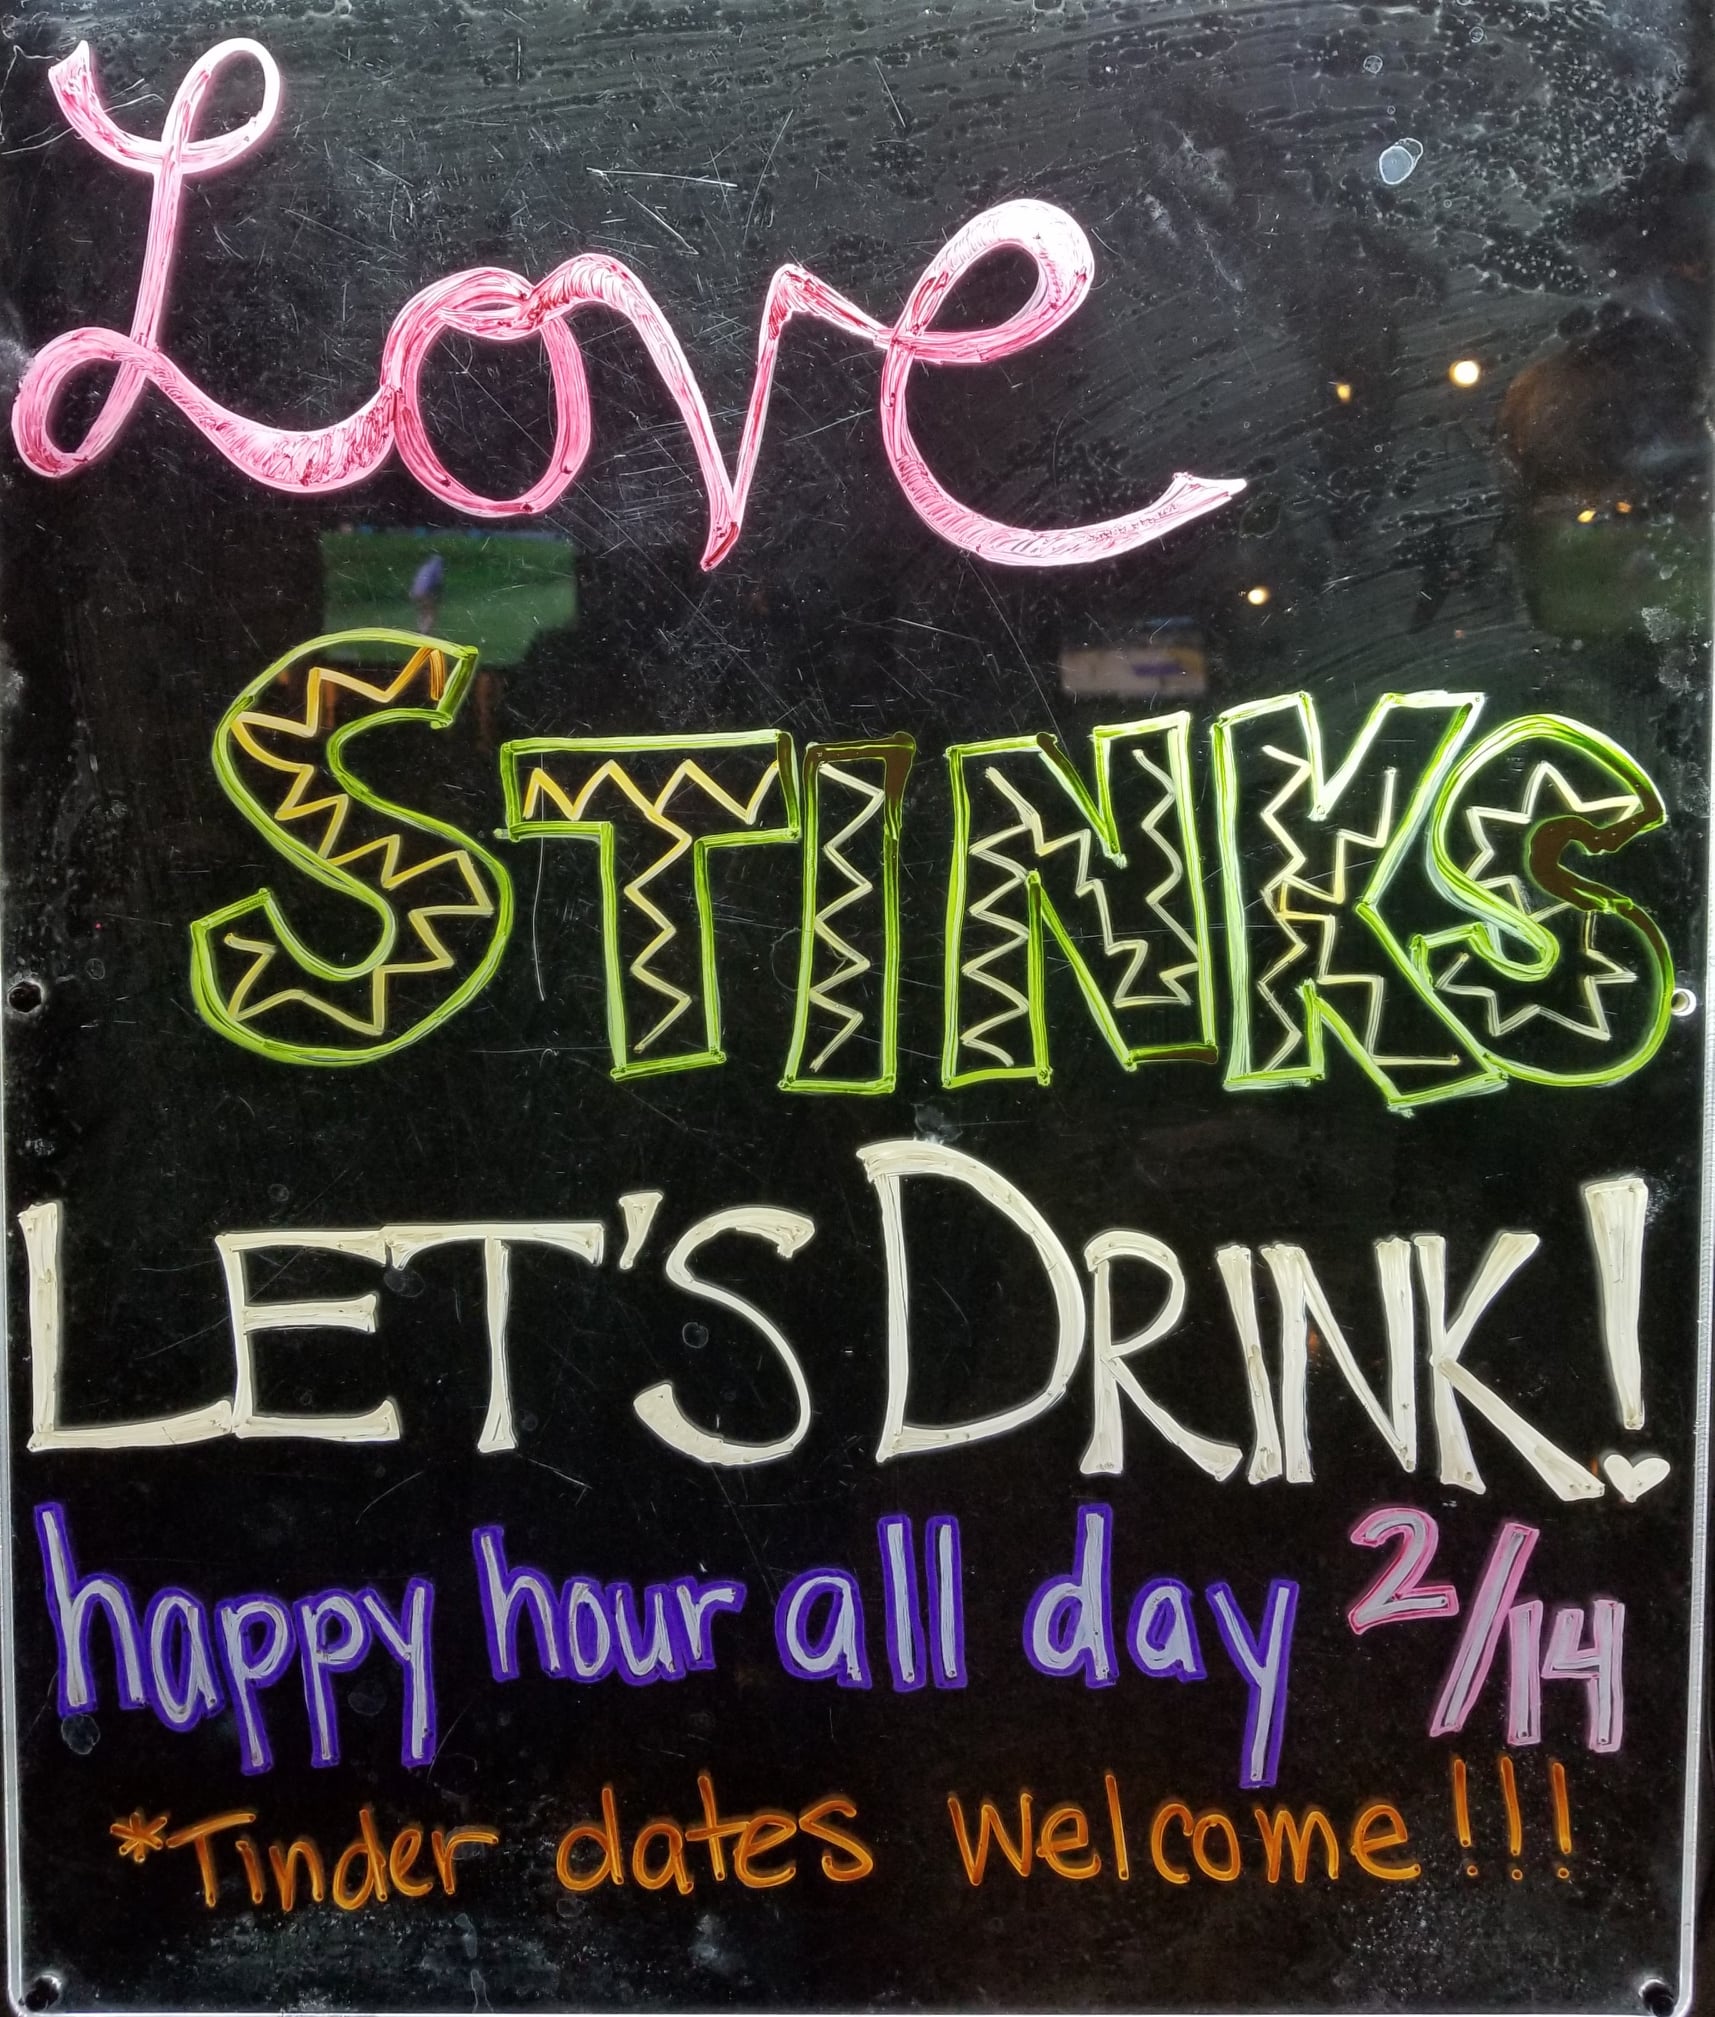 Love
STINKS
LET'S DRINK!
happy hour all day 2/14
*Tinder dates welcome!!!